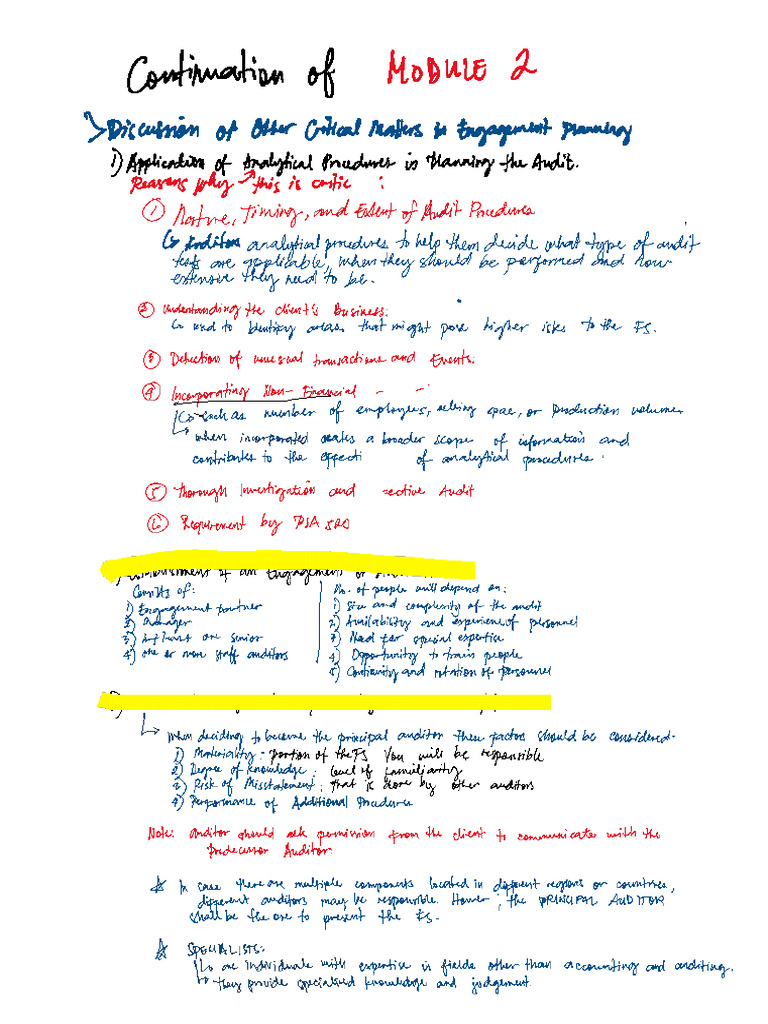 Continuation of MODULE 2
> Discussion of Other Critical Matters in Engagement Planning
1) Application of Analytical Procedures in Planning the Audit.
Reasons why → this is critic :
① Nature, Timing, and Extent of Audit Procedures
↳ Auditors analytical procedures to help them decide what type of audit
tests are applicable, when they should be performed and how
extensive they need to be.
② Understanding the client's Business.
↳ used to Identify areas that might pose higher risks to the FS.
③ Detection of unusual transactions and Events.
④ Incorporating Non-Financial - -
↳ such as number of employees, selling space, or production volume
↳ when incorporated makes a broader scope of information and
contributes to the effecti of analytical procedures.
⑤ Thorough Investigation and -ective Audit
⑥ Requirement by PSA 520
of an Engagement
Consists of:
1) Engagement partner
2) Manager
3) At least one senior
4) One or more staff auditors
No. of people will depend on:
1) Size and complexity of the audit
2) Availability and experience of personnel
3) Need for special expertise
4) Opportunity to train people
5) Continuity and rotation of personnel
↳ When deciding to become the principal auditor these factors should be considered.
1) Materiality - portion of the FS You will be responsible
2) Degree of knowledge : level of familiarity
3) Risk of Misstatement : that is done by other auditors
4) Performance of Additional Procedures
Note: auditor should ask permission from the client to communicate with the
Predecessor Auditor
☆ In case there are multiple components located in different regions or countries,
different auditors may be responsible. However, the PRINCIPAL AUDITOR
shall be the one to present the FS.
☆ SPECIALISTS:
↳ are individuals with expertise in fields other than accounting and auditing.
↳ they provide specialised knowledge and judgement.